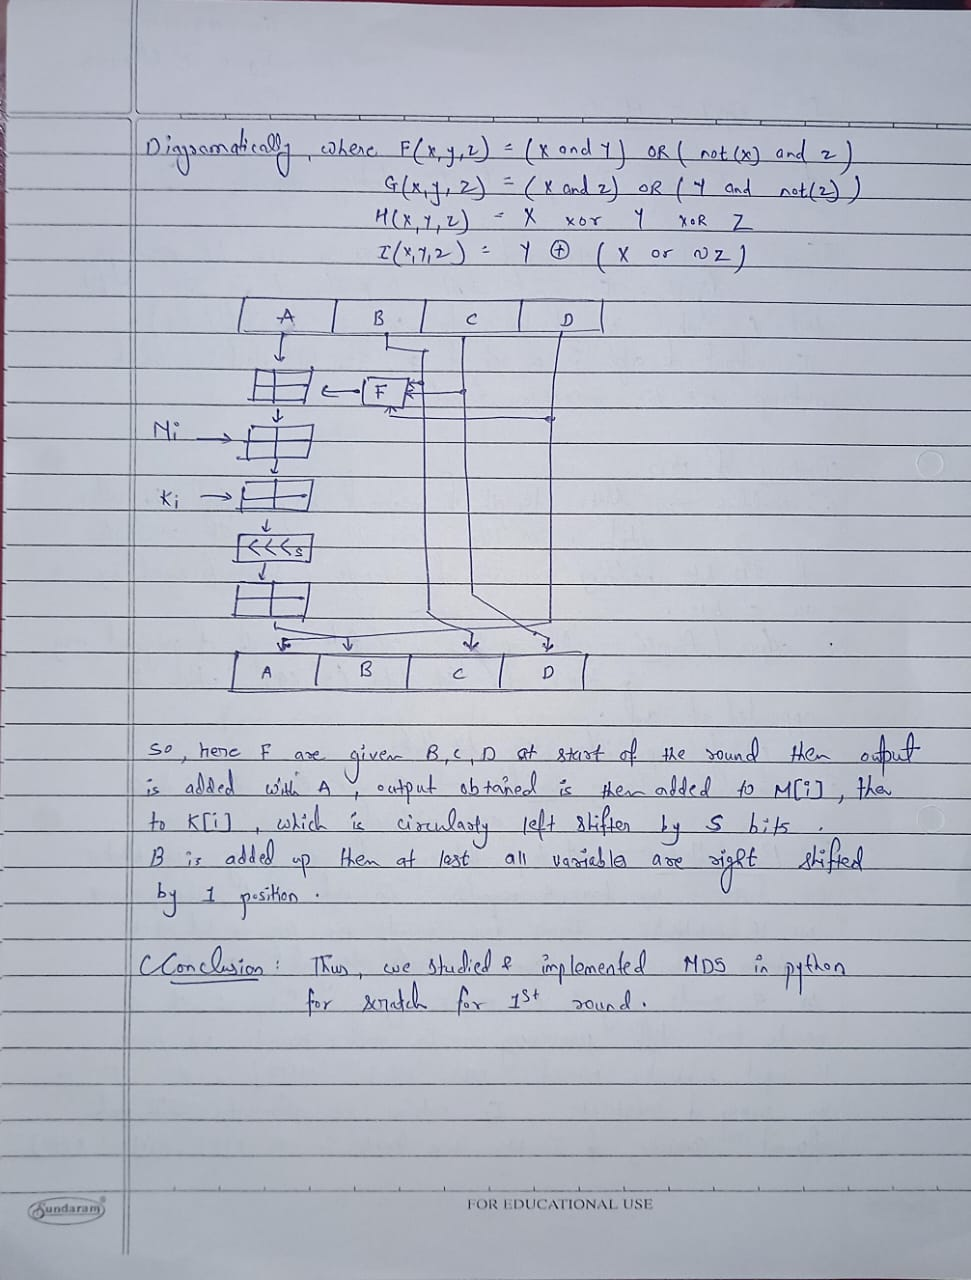 Digramatically, where F(x,y,z) = (x and Y) OR ( not(x) and z)
G(x,y,z) = (x and z) OR (Y and not(z))
H(x,Y,z) = X xor Y XOR Z
I(x,Y,z) = Y ⊕ (X or ~z)
A B C D
F
Mi
Ki
<<<s
A B C D
So, here F are given B, C, D at start of the round then output
is added with A, output obtained is then added to M[i], then
to K[i], which is circularly left shifter by S bits.
B is added up then at last all variables are right shifted
by 1 position.
Conclusion: Thus, we studied & implemented MD5 in python
for scratch for 1st round.
Sundaram
FOR EDUCATIONAL USE